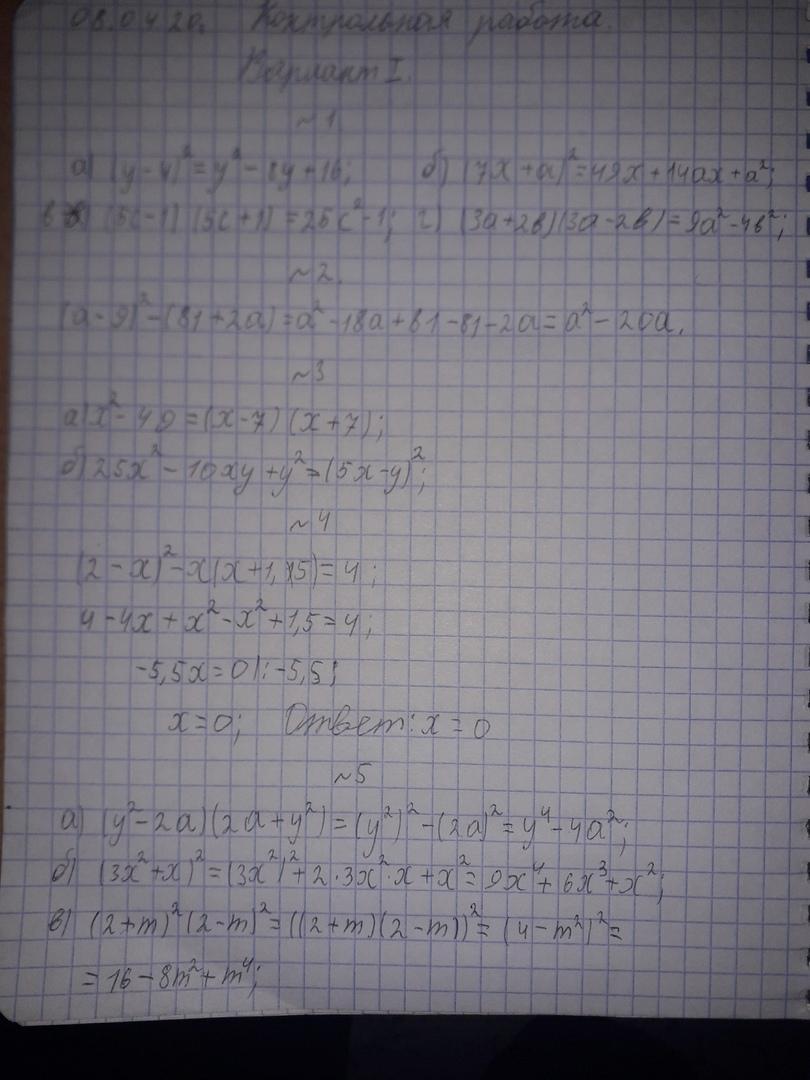 08.04.20. Контрольная работа.
Вариант I.
~1
а) (y-4)²=y²-8y+16; б) (7x+a)²=49x+14ax+a²;
в) (5c-1)(5c+1)=25c²-1; г) (3a+2b)(3a-2b)=9a²-4b²;
~2.
(a-9)²-(81+2a)=a²-18a+81-81-2a=a²-20a.
~3
а) x²-49=(x-7)(x+7);
б) 25x²-10xy+y²=(5x-y)²;
~4
(2-x)²-x(x+1,5)=4;
4-4x+x²-x²+1,5=4;
-5,5x=0|:-5,5;
x=0; Ответ: x=0
~5
а) (y²-2a)(2a+y²)=(y²)²-(2a)²=y⁴-4a²;
б) (3x²+x)²=(3x²)²+2·3x²·x+x²=9x⁴+6x³+x²;
в) (2+m)²(2-m)²=((2+m)(2-m))²=(4-m²)²=
=16-8m²+m⁴;